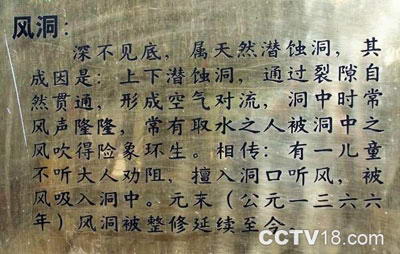 风洞：
深不见底，属天然潜蚀洞，其
成因是：上下潜蚀洞，通过裂隙自
然贯通，形成空气对流，洞中时常
风声隆隆，常有取水之人被洞中之
风吹得险象环生。相传：有一儿童
不听大人劝阻，擅入洞口听风，被
风吸入洞中。元末（公元一三六六
年）风洞被整修延续至今。
CCTV18.com